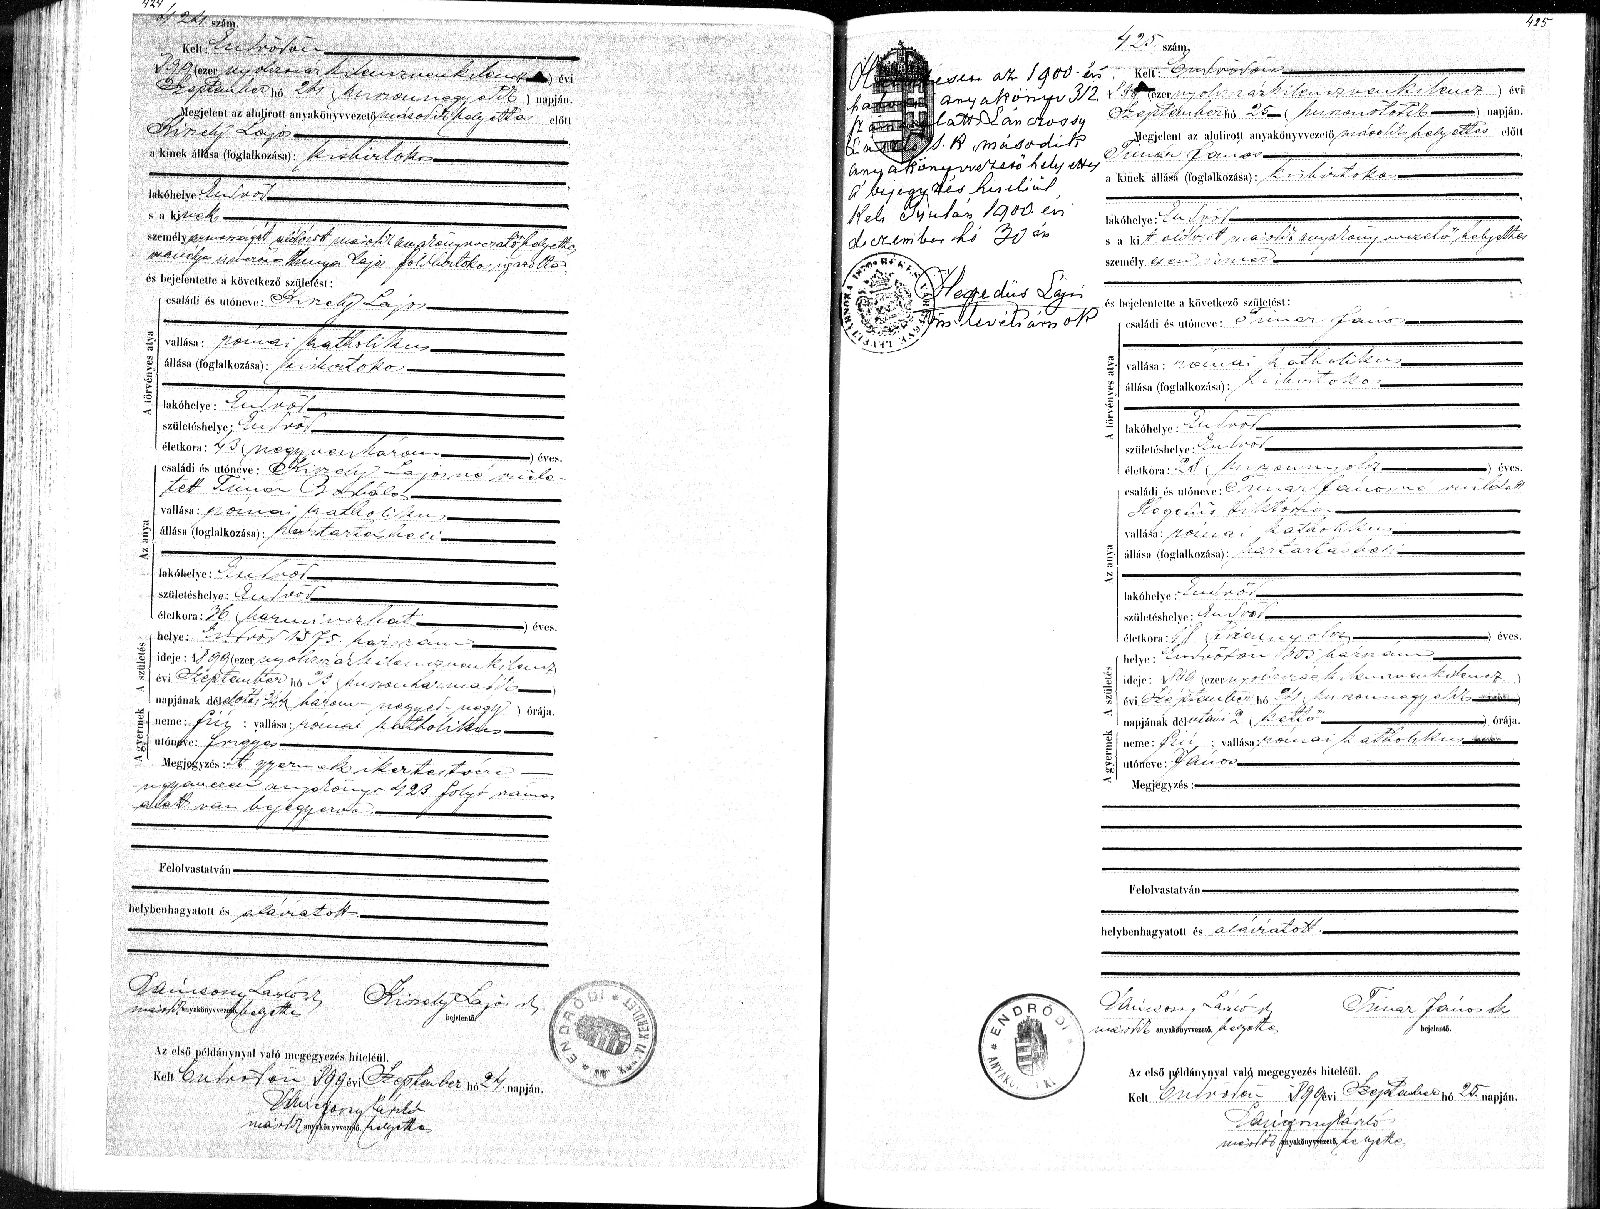 424
424 szám.
Kelt: Endrődön
899 (ezer nyolczszázkilenczvenkilencz) évi
Szeptember hó 24 (huszonnegyedik) napján.
Megjelent az alulirott anyakönyvvezető második helyettes előtt
Király Lajos
a kinek állása (foglalkozása): kisbirtokos
lakóhelye: Endrőd
s a kinek
személyazonosságát aláirott második anyakönyvvezető helyettes
Lajos földbirtokos igazolta
és bejelentette a következő születést:
A törvényes atya
családi és utóneve: Király Lajos
vallása: római katholikus
állása (foglalkozása): kisbirtokos
lakóhelye: Endrőd
születéshelye: Endrőd
életkora: 43 (negyvenhárom) éves.
Az anya
családi és utóneve: Király Lajosné szüle-
tett Timár Borbála
vallása: római katholikus
állása (foglalkozása): háztartásbeli
lakóhelye: Endrőd
születéshelye: Endrőd
életkora: 36 (harminczhat) éves.
A születés
helye: Endrőd 1375 házszám
ideje: 899 (ezer nyolczszázkilenczvenkilencz)
évi Szeptember hó 23 (huszonharmadik)
napjának délelőtti 3/4 (három negyed négy) órája.
A gyermek
neme: fiú ; vallása: római katholikus
utóneve: Frigyes
Megjegyzés: A gyermek ikertestvére
ugyanezen anyakönyv 423 folyó száma
alatt van bejegyezve
Felolvastatván
helybenhagyatott és aláiratott
második anyakönyvvezető helyettes
Király Lajos sk
bejelentő.
ENDRŐDI KERÜLET
Az első példánynyal való megegyezés hiteléül.
Kelt Endrődön 899 évi Szeptember hó 24 napján.
másodk anyakönyvvezető helyettes
425
az 1900 évi
anyakönyv 312
alatt Lánczossy
s.k. második
anyakönyvvezető helyettes
a bejegyzés hiteléül
Kelt Gyulán 1900 évi
deczember hó 30 án
Hegedüs Lajos
levéltárnok
425 szám.
Kelt: Endrődön
899 (ezer nyolczszázkilenczvenkilencz) évi
Szeptember hó 25 (huszonötödik) napján.
Megjelent az alulirott anyakönyvvezető másodk helyettes előtt
Timár János
a kinek állása (foglalkozása): kisbirtokos
lakóhelye: Endrőd
s a kit aláirott másodk anyakönyvvezető helyettes
személyesen ismer
és bejelentette a következő születést:
A törvényes atya
családi és utóneve: Timár János
vallása: római katholikus
állása (foglalkozása): kisbirtokos
lakóhelye: Endrőd
születéshelye: Endrőd
életkora: 28 (huszonnyolcz) éves.
Az anya
családi és utóneve: Timár Jánosné született
Hegedüs Viktória
vallása: római katholikus
állása (foglalkozása): háztartásbeli
lakóhelye: Endrőd
születéshelye: Endrőd
életkora: 18 (tizennyolcz) éves.
A születés
helye: Endrődön házszám
ideje: 899 (ezer nyolczszázkilenczvenkilencz)
évi Szeptember hó 24 (huszonnegyedik)
napjának délutáni 2 (kettő) órája.
A gyermek
neme: fiú ; vallása: római katholikus
utóneve: János
Megjegyzés:
Felolvastatván
helybenhagyatott és aláiratott.
másodk anyakönyvvezető helyettes
Timár János sk
bejelentő.
ENDRŐDI
Az első példánynyal való megegyezés hiteléül.
Kelt Endrődön 899 évi Szeptember hó 25 napján.
másodk anyakönyvvezető helyettes